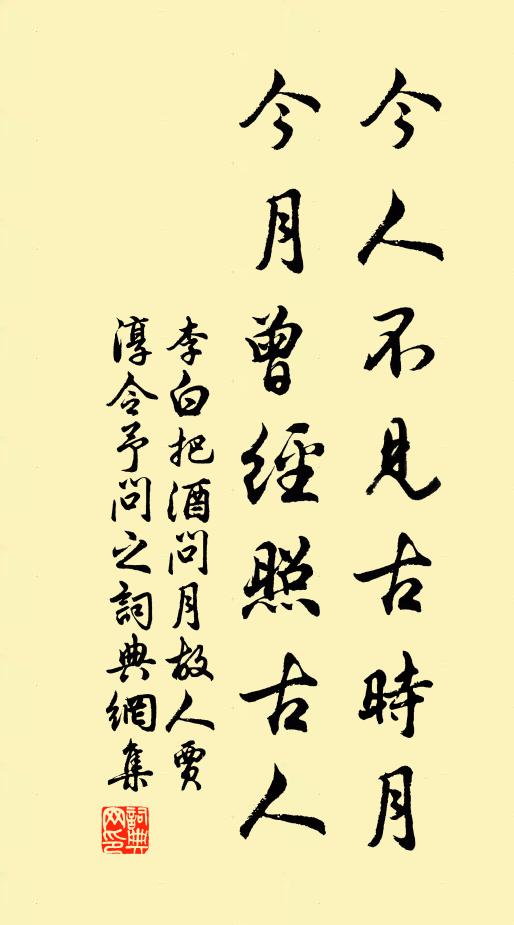 今人不見古時月
今月曾經照古人
李白把酒問月故人賈
淳令予問之詞典網集
詞典
网印